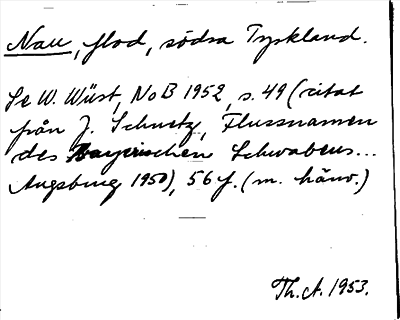 Nau, flod, södra Tyskland.
Se W. Wüst, NoB 1952, s. 49 (citat
från J. Schnetz, Flussnamen
des Bayerischen Schwabens...
Augsburg 1950), 56 f. (m. hänv.)
Th. A. 1953.